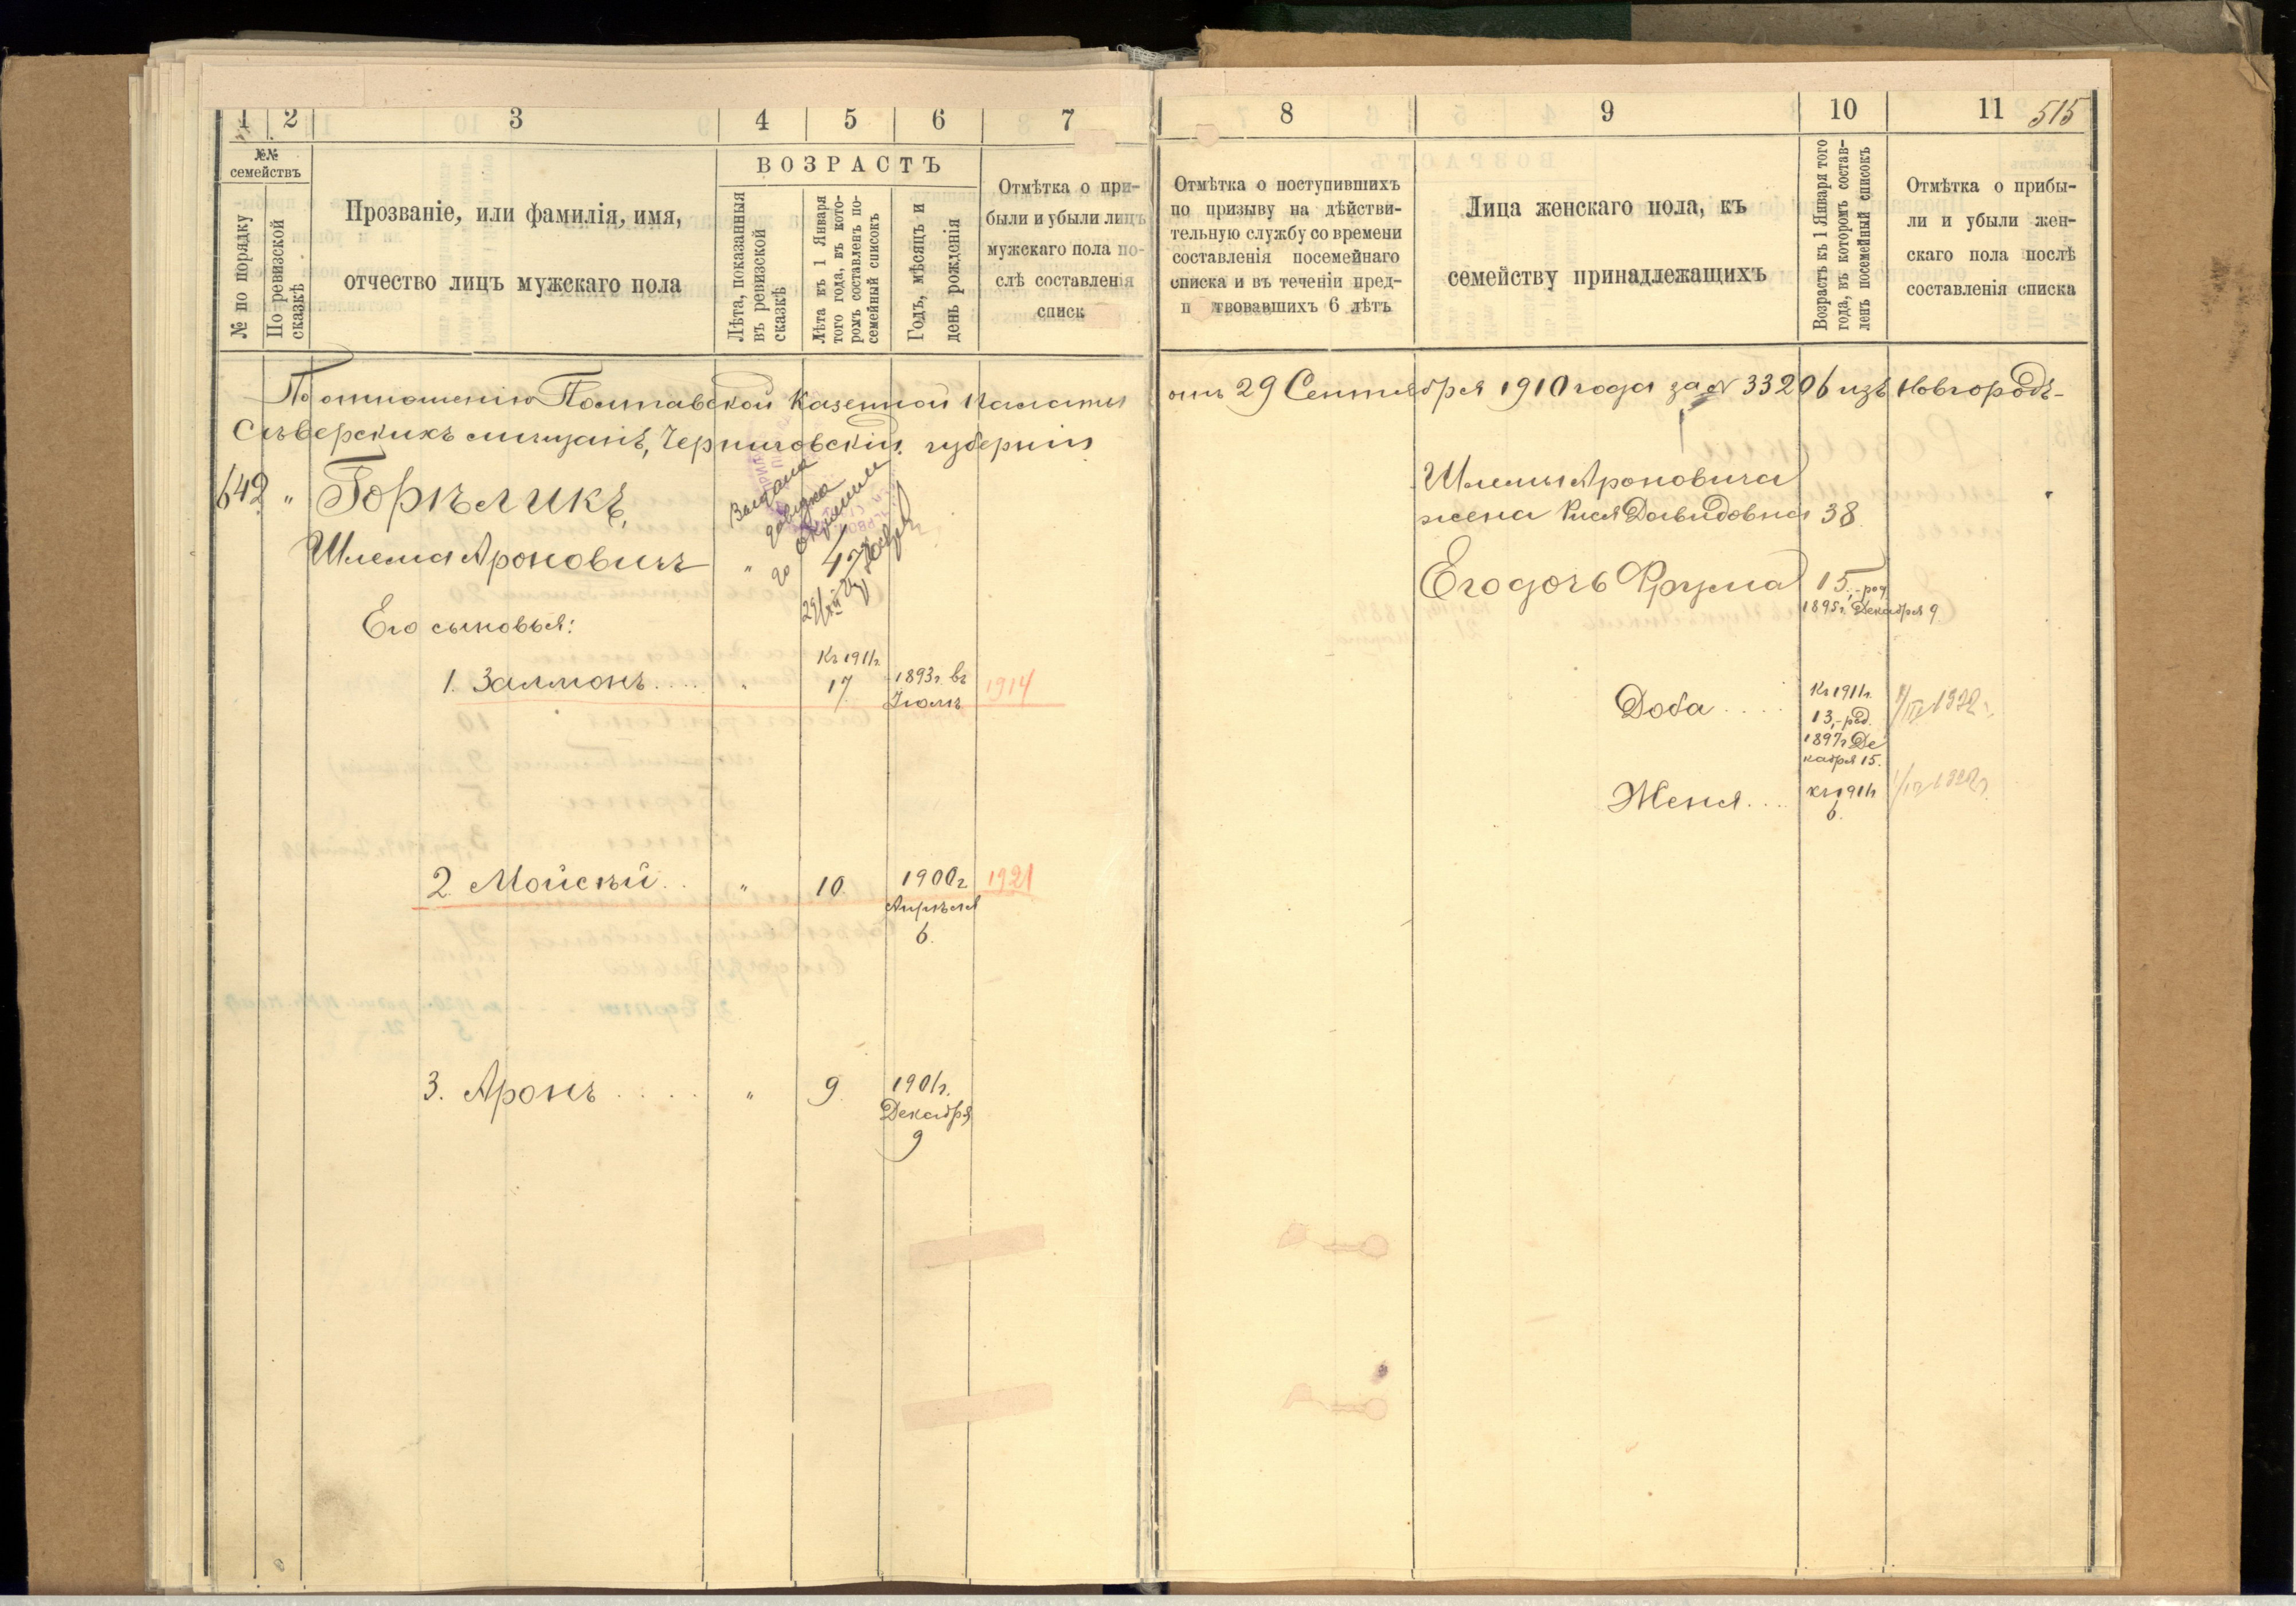 1 2 3 4 5 6 7
№№ семействъ
№ по порядку
По ревизской сказкѣ
Прозваніе, или фамилія, имя,
отчество лицъ мужскаго пола
ВОЗРАСТЪ
Лѣта, показанныя
въ ревизской
сказкѣ
Лѣта къ 1 Января
того года, въ кото-
ромъ составленъ по-
семейный списокъ
Годъ, мѣсяцъ и
день рожденія
Отмѣтка о при-
были и убыли лицъ
мужскаго пола по-
слѣ составленія
списк
8 9 10 11 515
Отмѣтка о поступившихъ
по призыву на дѣйстви-
тельную службу со времени
составленія посемейнаго
списка и въ теченіи пред-
п твовавшихъ 6 лѣтъ
Лица женскаго пола, къ
семейству принадлежащихъ
Возрастъ къ 1 Января того
года, въ которомъ состав-
ленъ посемейный списокъ
Отмѣтка о прибы-
ли и убыли жен-
скаго пола послѣ
составленія списка
По отношенію Полтавской Казенной Палаты отъ 29 Сентября 1910 года за № 33206 изъ Новгородъ-
Сѣверскихъ мѣщанъ, Черниговскія губерніи
642 " Горѣликъ,
Шлема Ароновичъ "
Выдана
довидка
47
Его сыновья:
1. Залмонъ.... " Къ 1911г. 17 1893г. въ Іюлѣ 1914
2. Мойсѣй.. " 10. 1900г Апрѣля 6. 1921
3. Аронъ..... " 9. 1901г. Декабря 9
Шлемы Ароновича
жена Рися Давидовна 38
Его дочь Фрума 15,-род.
1895г. Декабря 9.
Доба.... Къ 1911г.
13,-род.
1897г Де
кабря 15.
Женя.... къ 1911г
6.